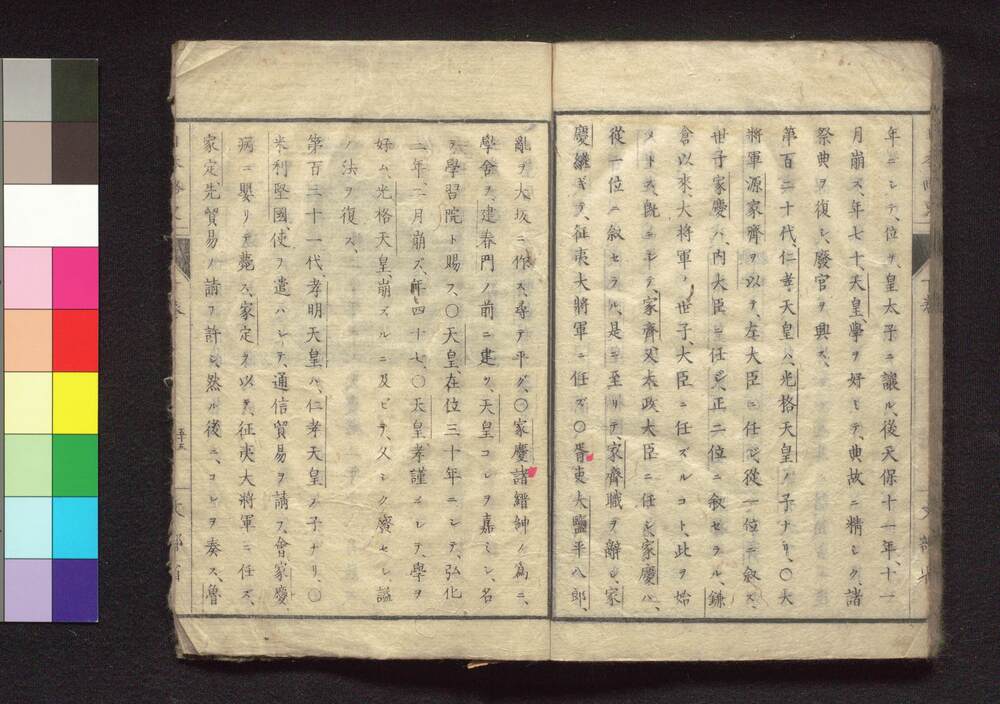 年ニシテ、位ヲ、皇太子ニ讓ル、後天保十一年、十一
月崩ス、年七十、天皇、學ヲ好ミテ、典故ニ精シク、諸
祭典ヲ復シ、廢官ヲ興ス、
第百二十代、仁孝天皇ハ、光格天皇ノ子ナリ、〇大
將軍源家齊ヲ以テ、左大臣ニ任ジ從一位ニ叙ス、
世子家慶ハ、內大臣ニ任ジ、正二位ニ叙セラル、鎌
倉以來、大將軍ノ世子、大臣ニ任ズルコト、此ヲ始
メトス、既ニシテ、家齊又太政大臣ニ任ジ、家慶ハ、
從一位ニ叙セラル、是ニ至リテ、家齊職ヲ辭シ、家
慶繼ギテ、征夷大將軍ニ任ズ〇胥吏大鹽平八郎、
亂ヲ大坂ニ作ス、尋テ平グ、〇家慶諸縉紳ノ爲ニ、
學舍ヲ、建春門ノ前ニ建ツ、天皇コレヲ嘉ミシ、名
ヲ學習院ト賜フ、〇天皇在位三十年ニシテ、弘化
三年、二月崩ズ、年四十七、〇天皇孝謹ニシテ、學ヲ
好ム、光格天皇、崩ズルニ及ビテ、久シク廢セシ、謚
ノ法ヲ復ス、
第百二十一代、孝明天皇ハ、仁孝天皇ノ子ナリ、〇
米利堅國使ヲ遣ハシテ、通信貿易ヲ請フ、會家慶
病ニ嬰リテ薨ス、家定ヲ以テ、征夷大將軍ニ任ズ、
家定先貿易ノ請ヲ許シ、然ル後ニ、コレヲ奏ス、魯